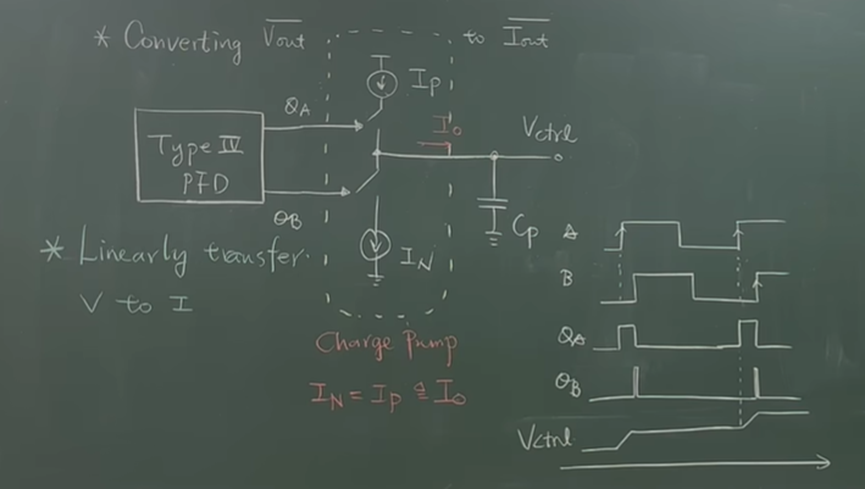 * Converting Vout to Iout
IP
QA
Type IV
PFD
Io
Vctrl
QB
CP
IN
* Linearly transfer
V to I
Charge Pump
IN = IP ≜ Io
A
B
QA
QB
Vctrl